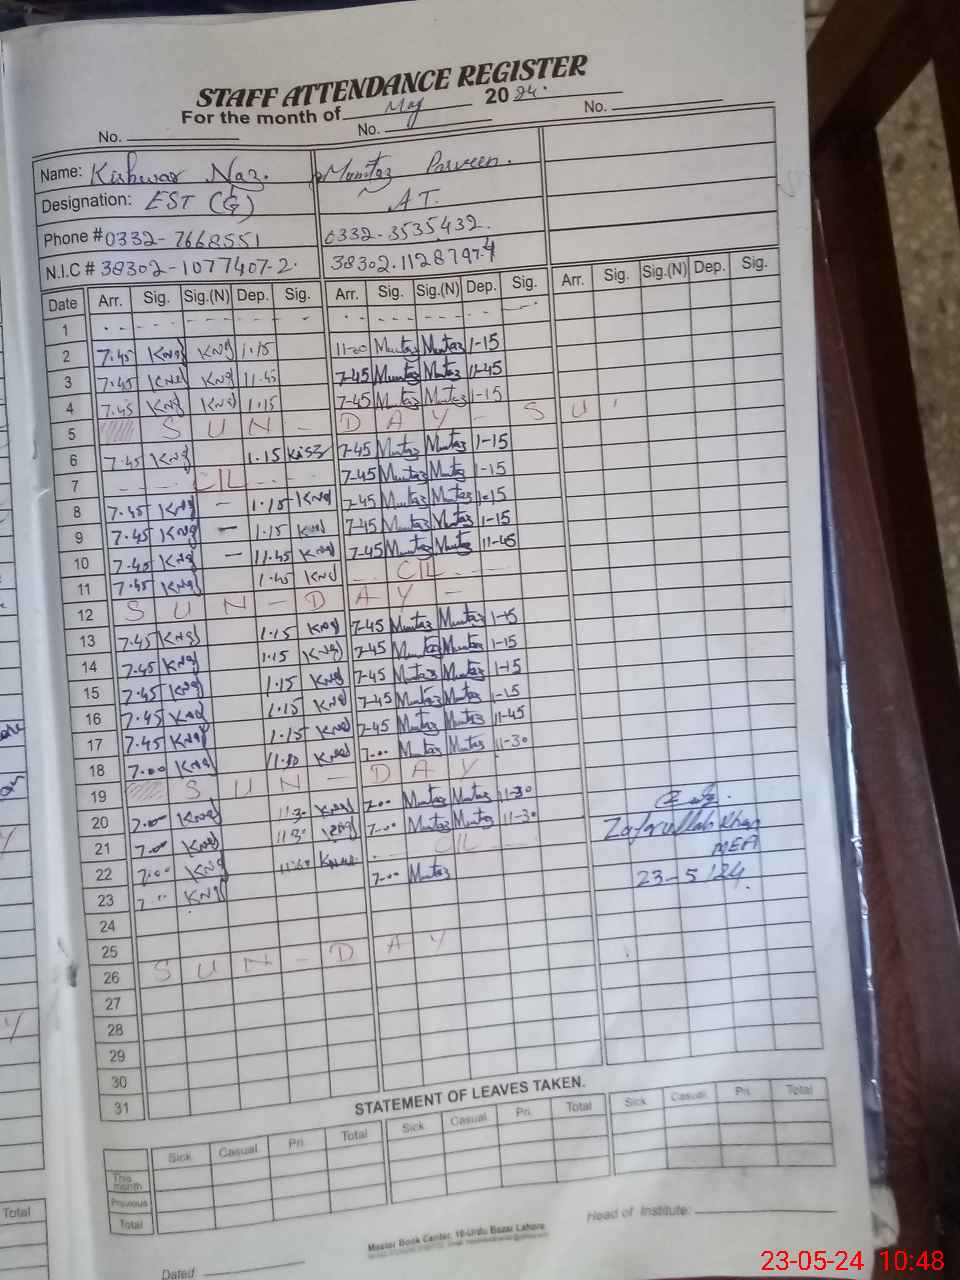 STAFF ATTENDANCE REGISTER
For the month of May 2024.
No. No. No.
Name: Kishwar Naz. Mumtaz Parveen.
Designation: EST (G) AT.
Phone # 0332-7668551 0332-3535432.
N.I.C # 38302-1077407-2. 38302.1128797.4
Date Arr. Sig. Sig.(N) Dep. Sig. Arr. Sig. Sig.(N) Dep. Sig. Arr. Sig. Sig.(N) Dep. Sig.
1
2 7.45 KNg KNg 1.15 11-00 Mumtaz Mumtaz 1-15
3 7.45 KNg KNg 11.45 7-45 Mumtaz Mumtaz 11-45
4 7.45 KNg KNg 1.15 7-45 Mumtaz Mumtaz 1-15
5 S U N - D A Y - S U
6 7.45 KNg 1.15 7-45 Mumtaz Mumtaz 1-15
7 C/L 7-45 Mumtaz Mumtaz 1-15
8 7.45 KNg - 1.15 KNg 7-45 Mumtaz Mumtaz 1-15
9 7.45 KNg - 1.15 KNg 7-45 Mumtaz Mumtaz 1-15
10 7.45 KNg - 11.45 KNg 7-45 Mumtaz Mumtaz 11-45
11 7.45 KNg 1.45 KNg C/L
12 S U N - D A Y -
13 7.45 KNg 1.15 KNg 7-45 Mumtaz Mumtaz 1-15
14 7.45 KNg 1.15 KNg 7-45 Mumtaz Mumtaz 1-15
15 7.45 KNg 1.15 KNg 7-45 Mumtaz Mumtaz 1-15
16 7.45 KNg 1.15 KNg 7-45 Mumtaz Mumtaz 1-15
17 7.45 KNg 1.15 KNg 7-45 Mumtaz Mumtaz 11-45
18 7.00 KNg KNg 7-00 Mumtaz Mumtaz 11-30
19 S U N - D A Y
20 7.00 KNg 11.30 KNg 7-00 Mumtaz Mumtaz 11-30
21 7.00 KNg 11.30 KNg 7-00 Mumtaz Mumtaz 11-30
22 7.00 KNg C/L
23 7.00 KNg 7-00 Mumtaz
Zafarullah Khan
MEA
23-5/24.
24
25
26 S U N - D A Y
27
28
29
30
31
STATEMENT OF LEAVES TAKEN.
Sick Casual Pri. Total Sick Casual Pri. Total Sick Casual Pri. Total
This month
Previous
Total
Total
Head of Institute:
Master Book Center, 18-Urdu Bazar Lahore
Dated:
23-05-24 10:48